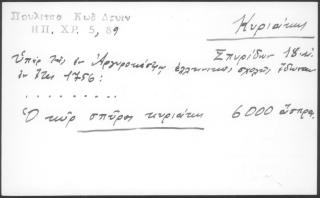 Πουλίτσα Κωδ Δενιν
ΗΠ. ΧΡ. 5, 89
Κυριάκης
Σπυρίδων 18 αἰ.
Ὑπὲρ τῆς ἐν Ἀργυροκάστρῳ ἑλληνικῆς σχολῆς ἔδωκαν
ἐν ἔτει 1756:
. . . . . . . . .
Ὁ κὺρ σπῦρος κυριάκης 6000 ἄσπρα.